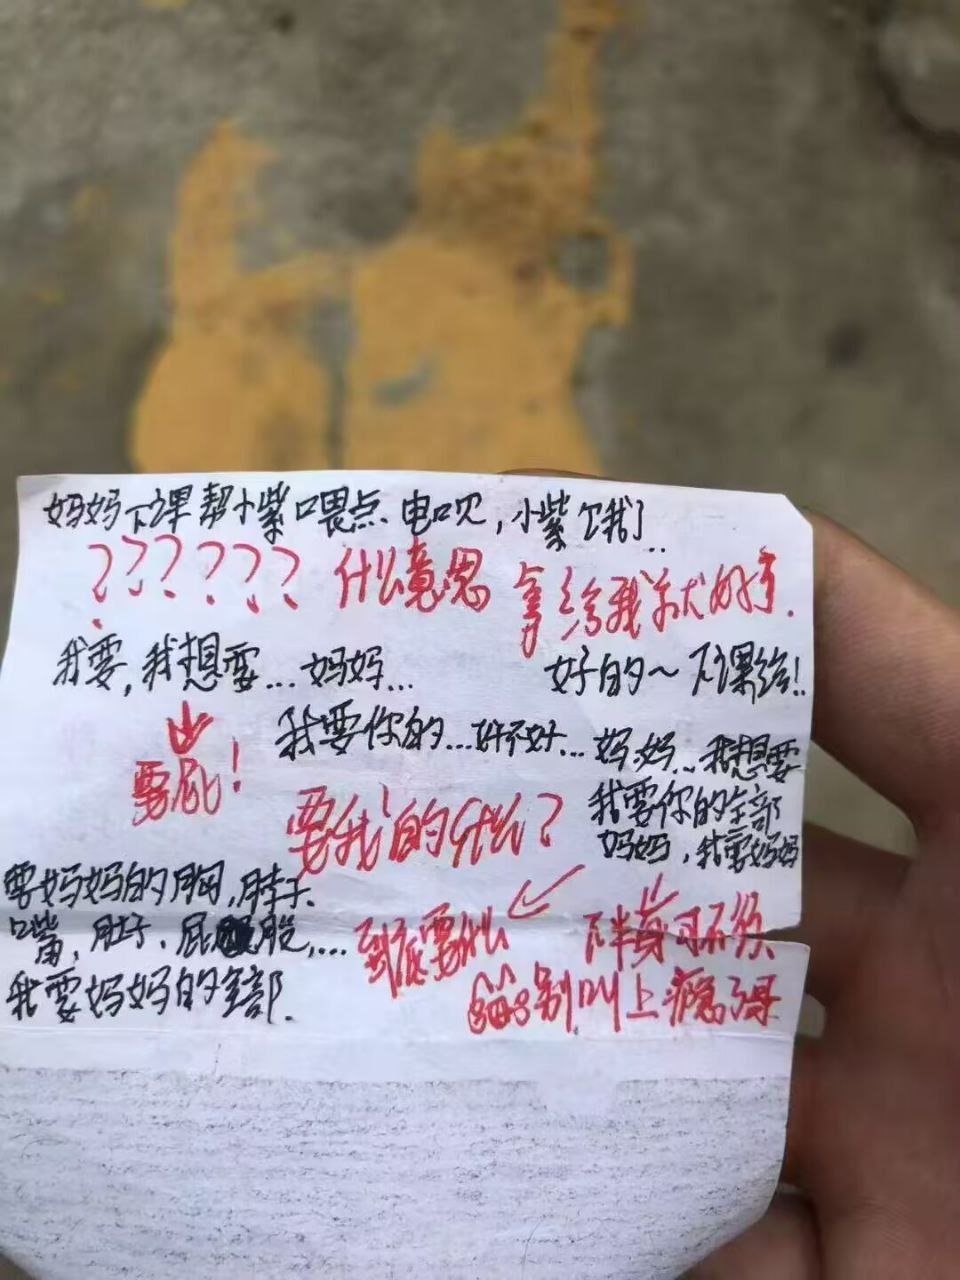 妈妈下课帮小紫喂点电呗，小紫饿了..
？？？？？？ 什么意思 拿给我就好了.
我要，我想要...妈妈...
好的～下课给!!
要屁！
我要你的...好不好...妈妈...我想要
要我的什么？
我要你的全部
妈妈，我要妈妈
要妈妈的胸,脖子.
嘴，肚子.屁股....
我要妈妈的全部.
到底要什么
下半身可不须
别叫上瘾了